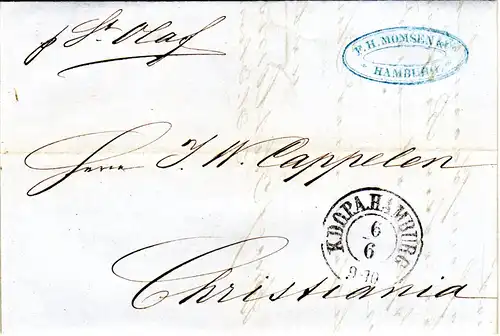 p St Olaf
P. H. MOMSEN & Co
HAMBURG.
Herrn J. W. Cappelen
K.D.O.P.A. HAMBURG
6
6
9-10
Christiania